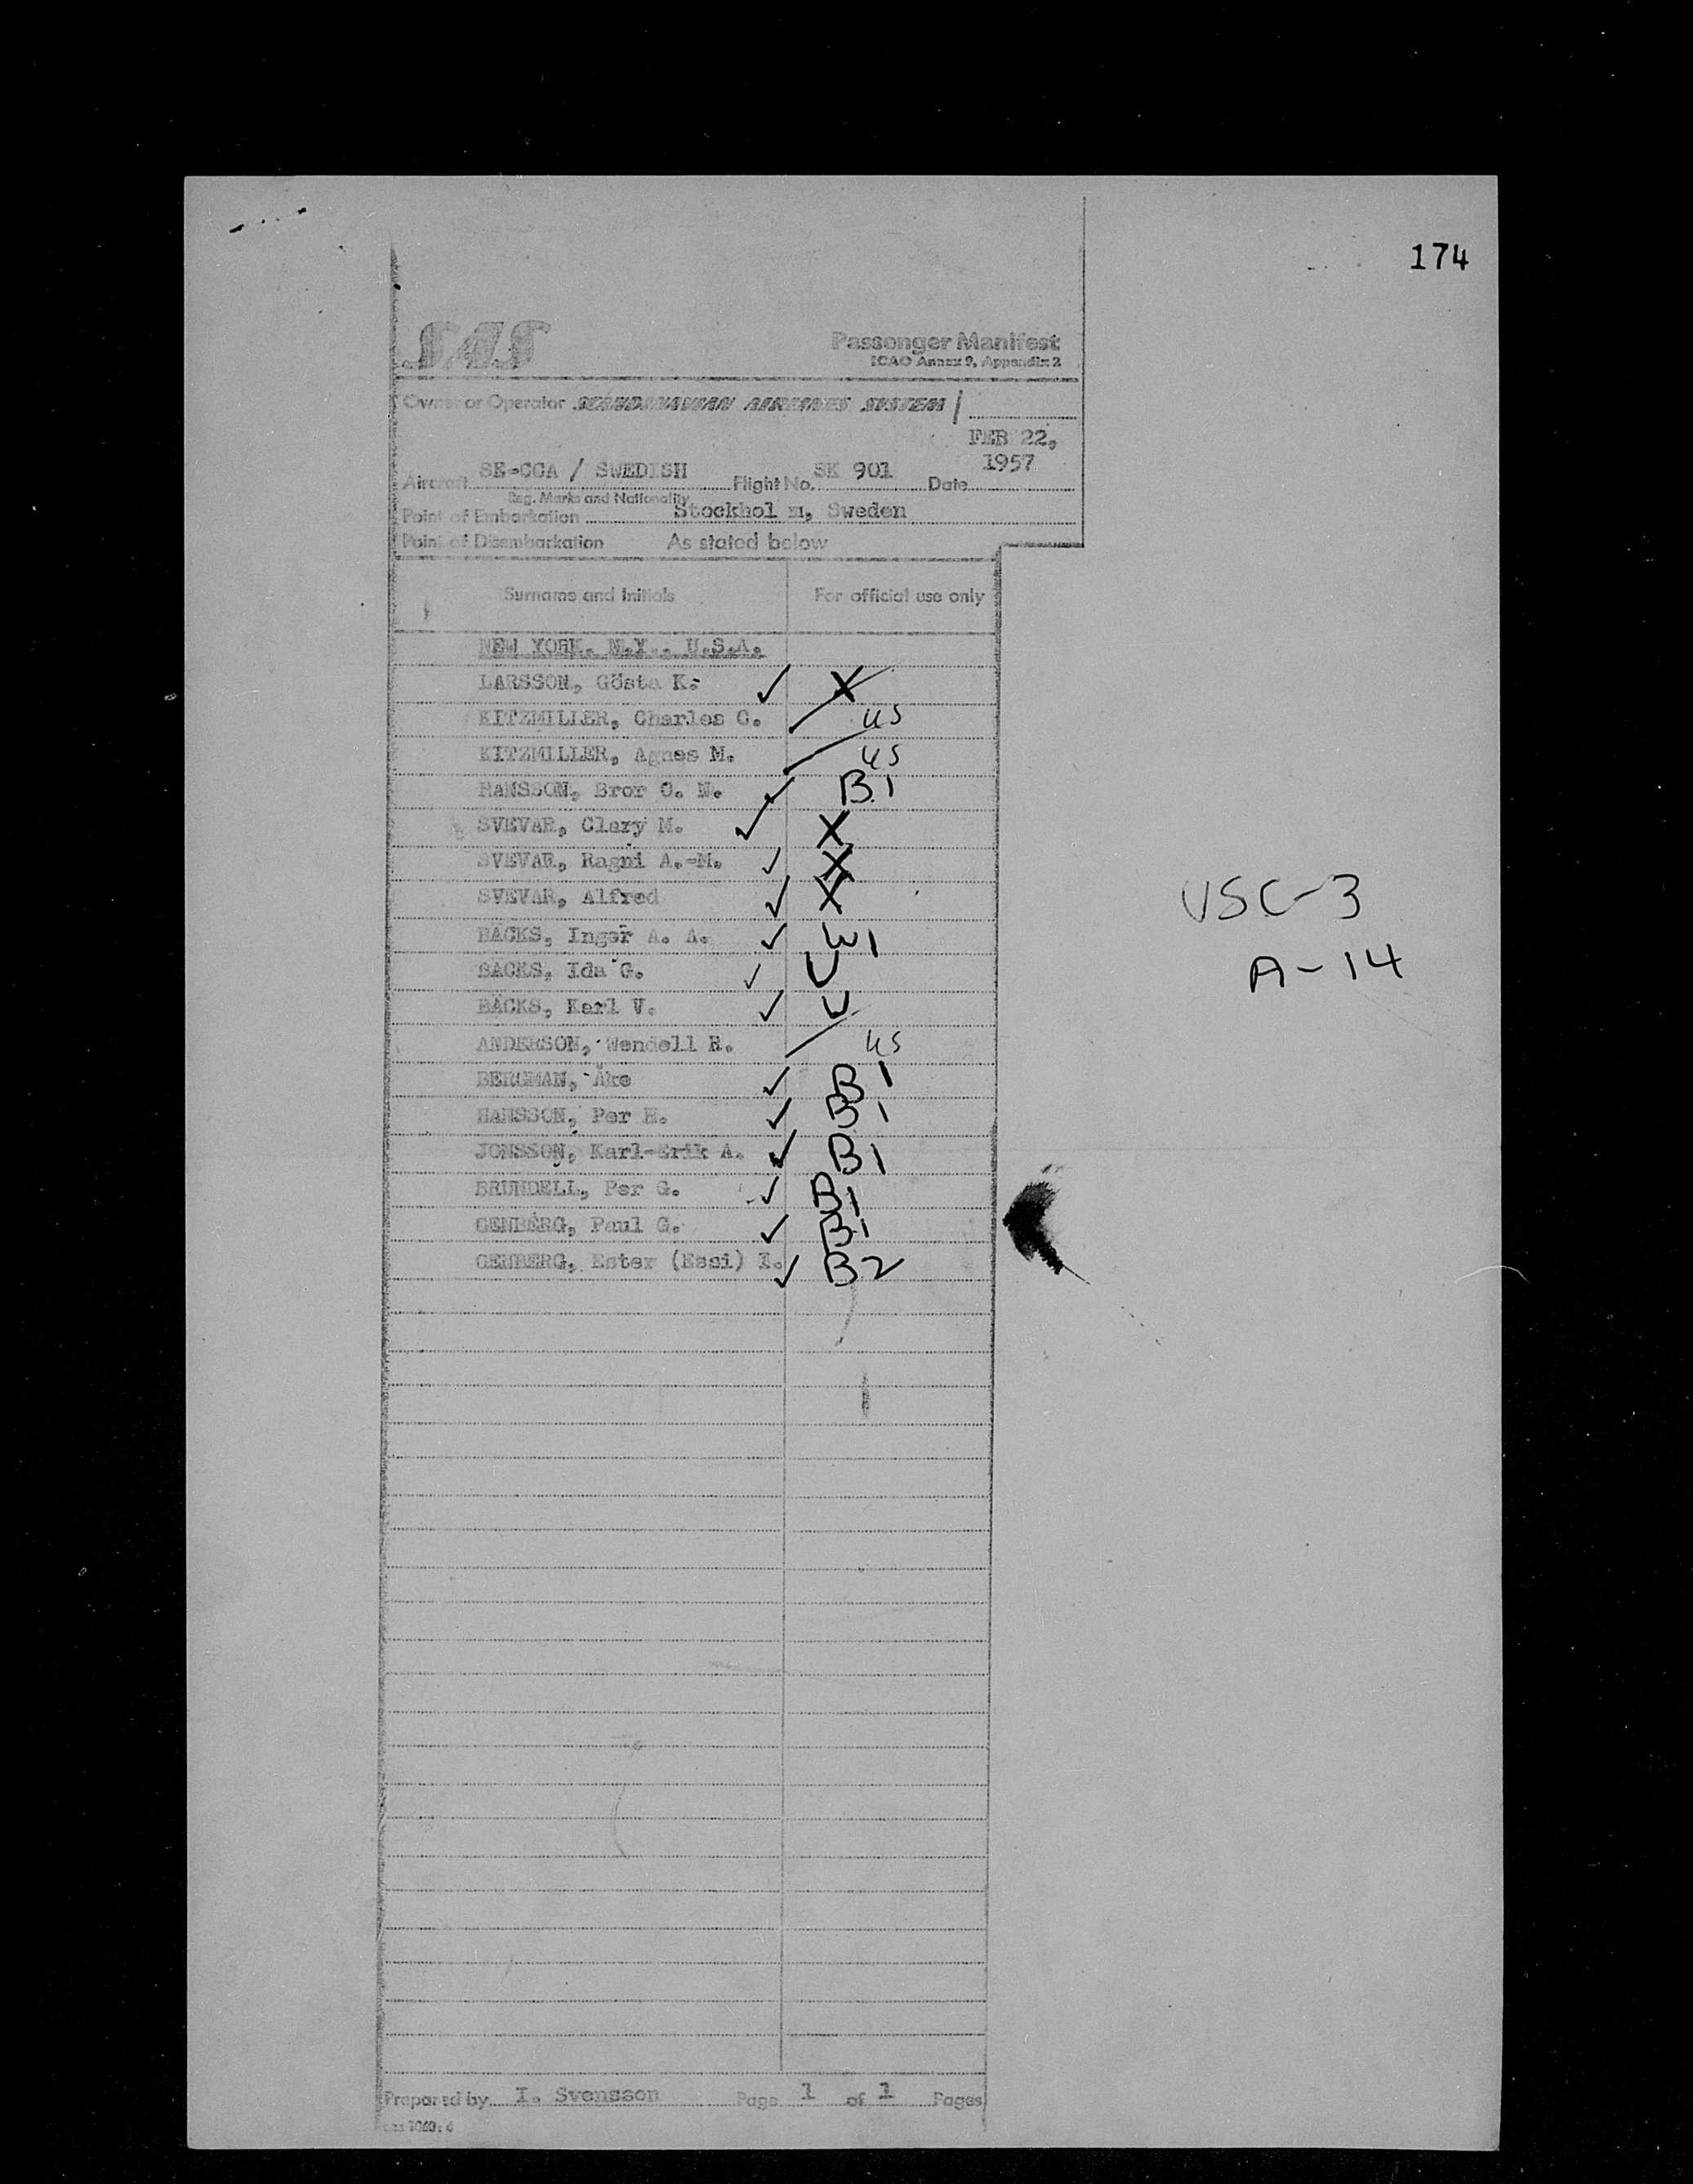 174
SAS
Passenger Manifest
ICAO Annex 9, Appendix 2
Owner or Operator SCANDINAVIAN AIRLINES SYSTEM
FEB 22,
1957
Aircraft SE-CCA / SWEDISH Flight No. SK 901 Date
Reg. Marks and Nationality
Point of Embarkation Stockhol m, Sweden
Point of Disembarkation As stated below
Surname and Initials For official use only
NEW YORK. N.Y.. U.S.A.
LARSSON, Gösta K. ✓ X
KITZMILLER, Charles C. US
KITZMILLER, Agnes M. US
HANSSON, Bror O. N. ✓ B.1
SVEVAR, Clary M. ✓ X
SVEVAR, Ragni A.-M. ✓ X
SVEVAR, Alfred ✓ X
BÄCKS, Inger A. A. ✓ W1
BÄCKS, Ida G. ✓ U
BÄCKS, Karl V. ✓ U
ANDERSON, Wendell R. US
BERGMAN, Åke ✓ B1
HANSSON, Per H. ✓ B1
JONSSON, Karl-Erik A. ✓ B1
BRUNDELL, Per G. ✓ B1
GENBERG, Paul G. ✓ B1
GENBERG, Ester (Essi) I. ✓ B2
USC-3
A-14
Prepared by I. Svensson Page 1 of 1 Pages